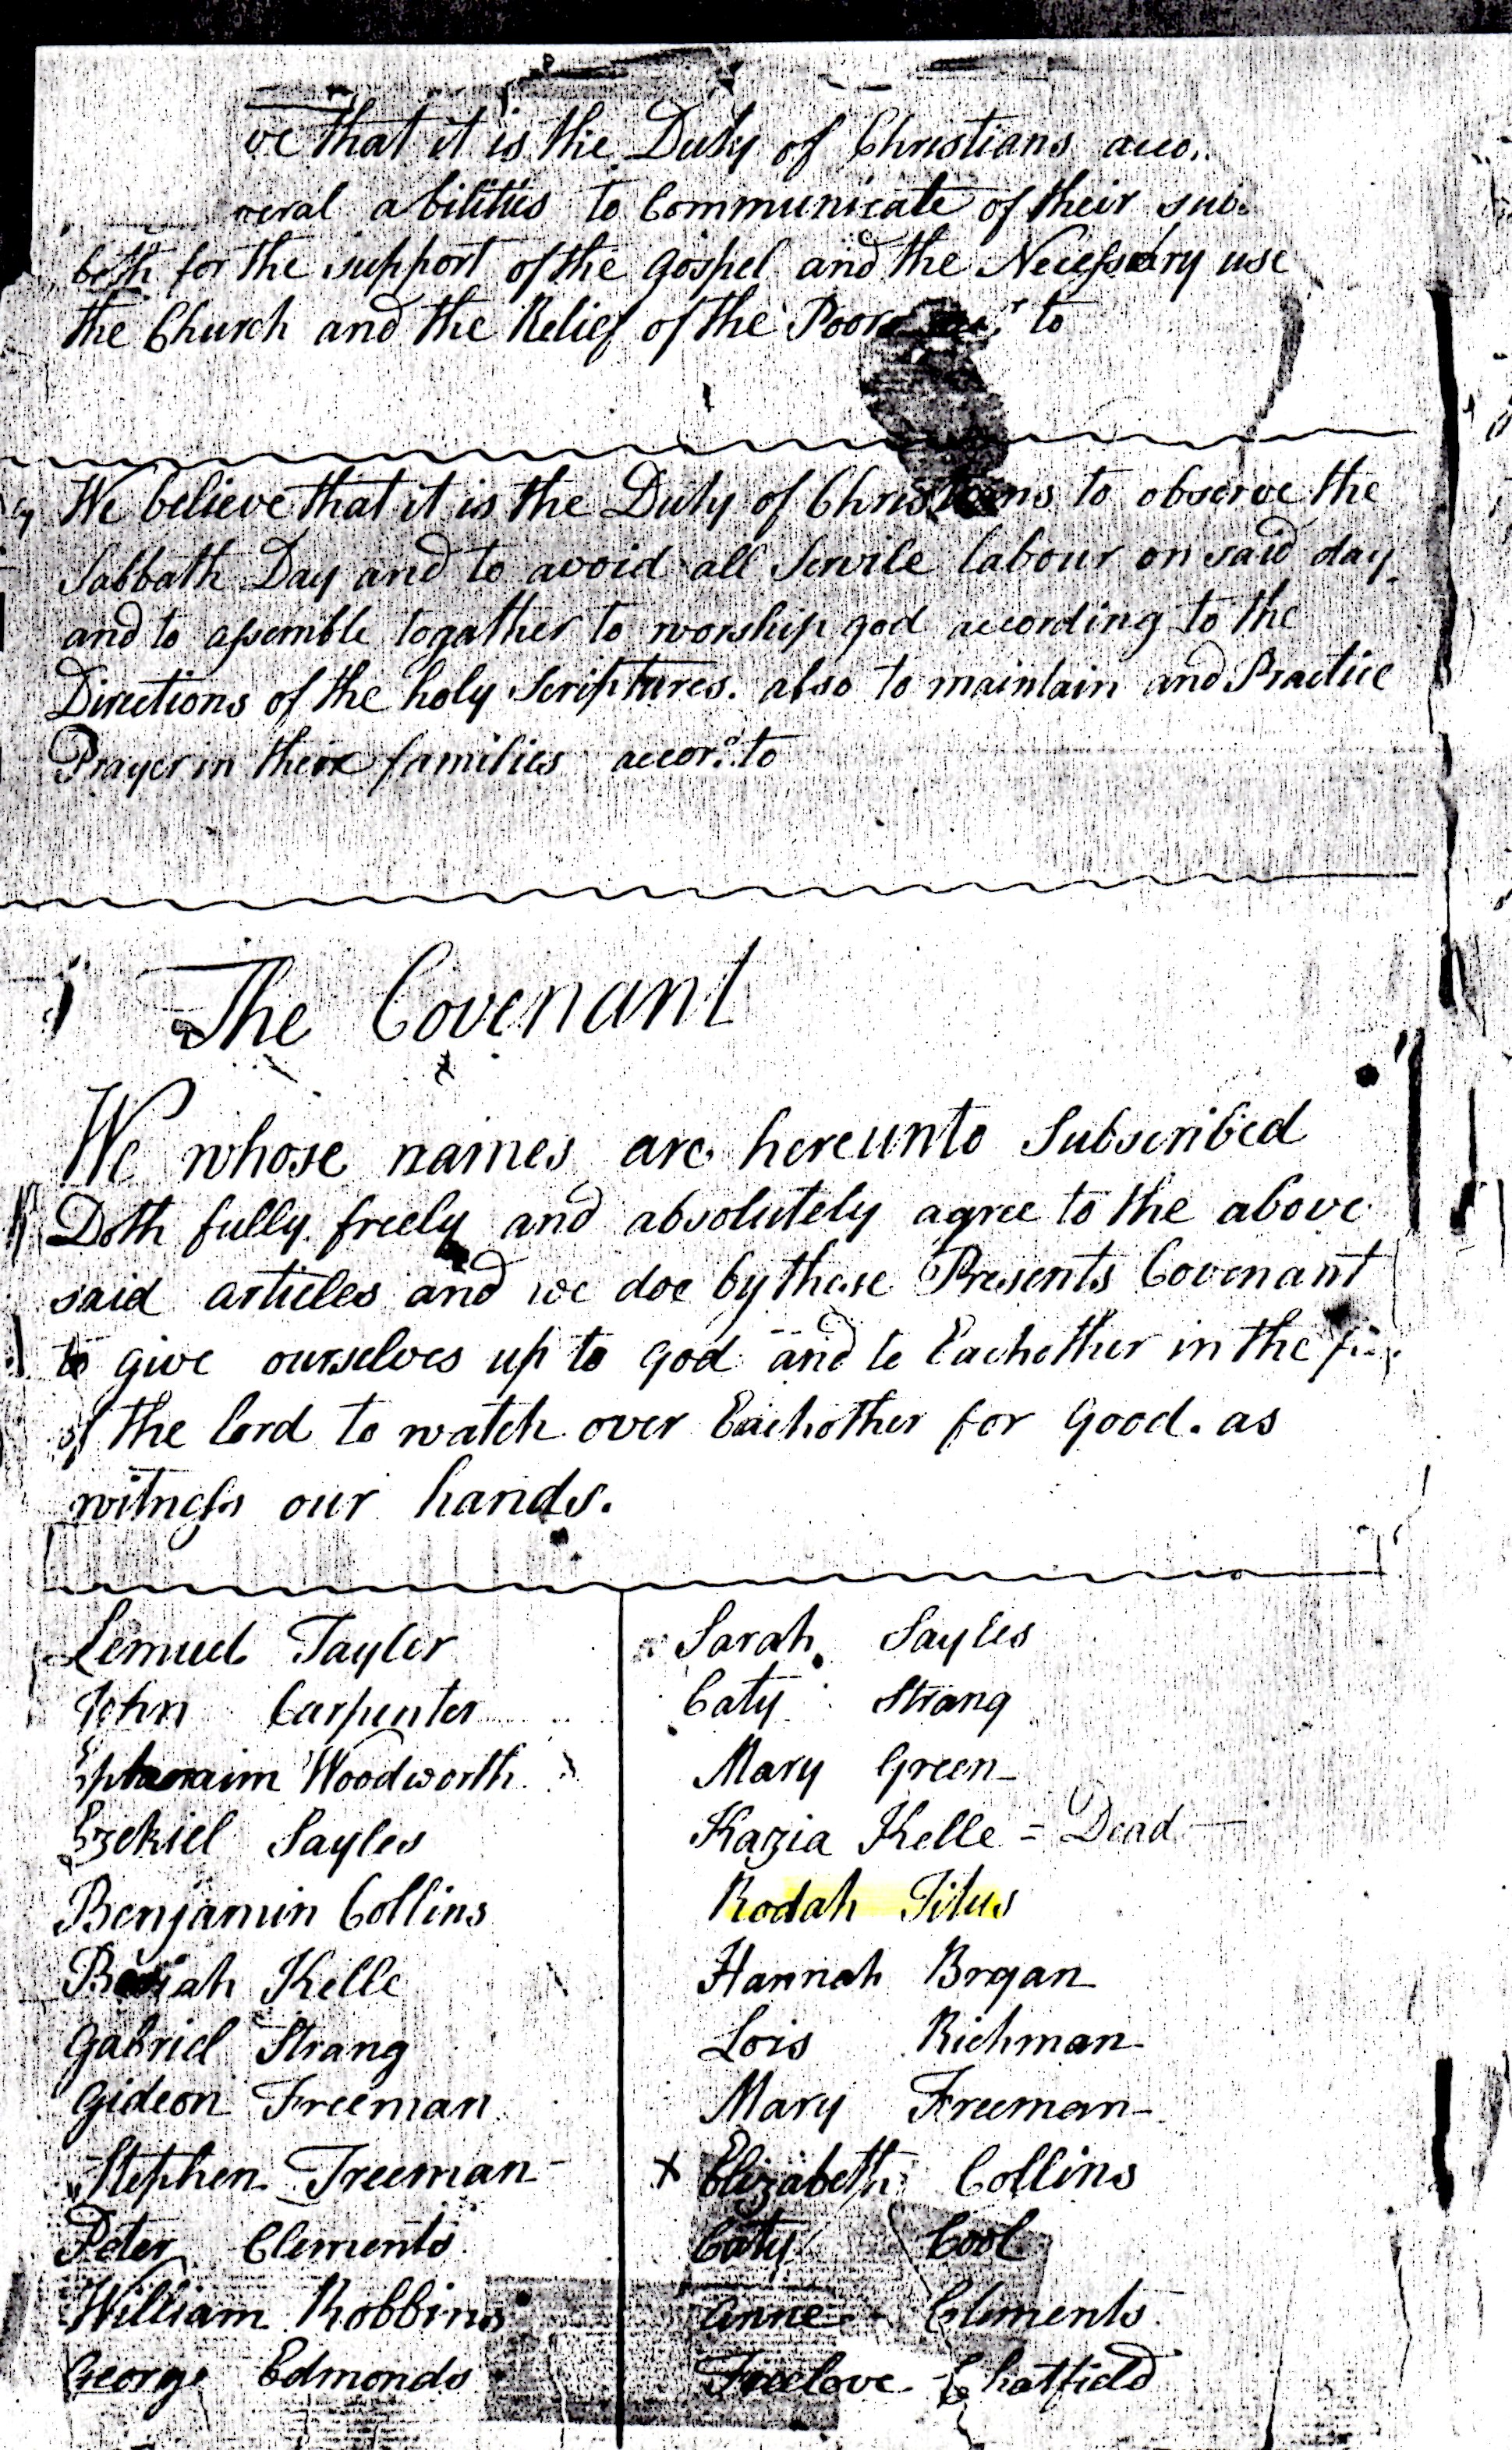 ve that it is the Duty of Christians
abilities to Communicate of their
both for the support of the gospel and the Necessary use
the Church and the Relief of the Poor to
We believe that it is the Duty of Christians to observe the
Sabbath Day and to avoid all Servile labour on said day
and to assemble togather to worship god according to the
Directions of the holy Scriptures. also to maintain and Practice
Prayer in their families accord. to
The Covenant
We whose names are hereunto Subscribed
Doth fully freely and absolutely agree to the above
said articles and we doe by these Presents Covenant
to give ourselves up to god and to Eachother in the
of the lord to watch over Eachother for good. as
witness our hands.
Lemuel Taylor
John Carpenter
Ephraim Woodworth
Ezekiel Sayles
Benjamin Collins
Kelle
Gabriel Strang
Gideon Freeman
Stephen Freeman
Peter Clements
William Robbins
George Edmonds
Sarah Sayles
Caty Strang
Mary Green
Kazia Kelle = Dead
Rodah Titus
Hannah Bryan
Lois Richman
Mary Freeman
x Elizabeth Collins
Caty Cool
anne Clements
Freelove Chatfield